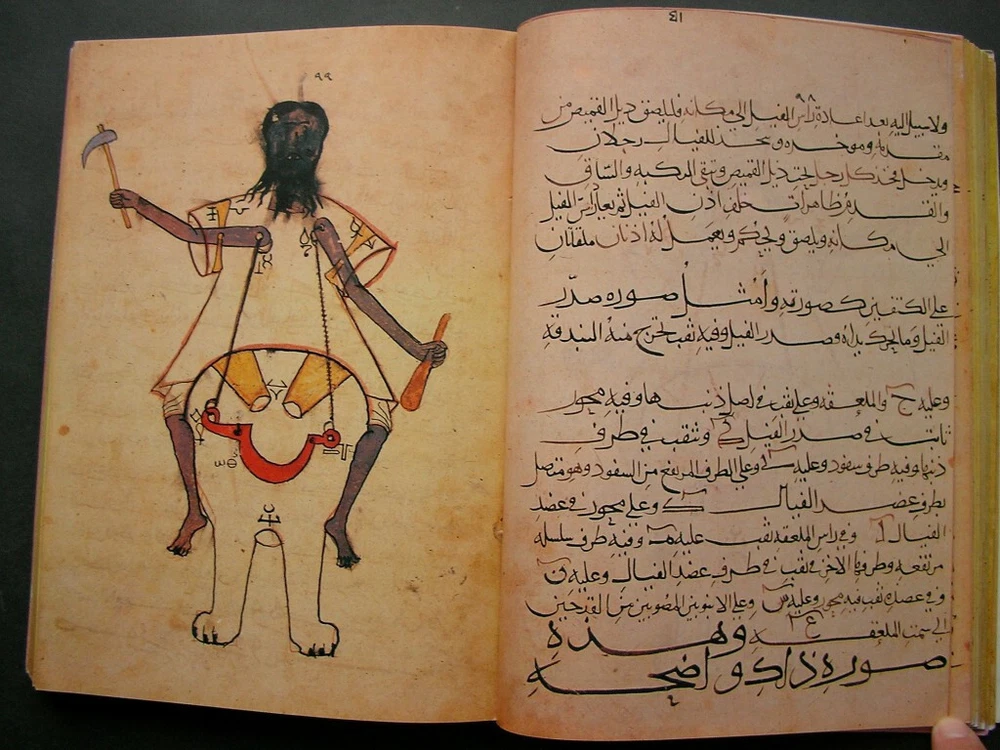 ٩٨
ولا سبيل اليه بعد اعادة راس الفيل الى مكانه فليلصق ذيل القميص من
مقدمه وموخره ويتخذ للفيال رجلان
ويدخل فخذ كل رجل تحت ذيل القميص وتبقى الركبه والساق
والقدم ظاهرات خلف اذن الفيل ثم يعاد راس الفيل
الى مكانه ويلصق ويحكم ويعمل له اذنان ملقاتان
على الكتفين كصورته وامثل صوره صدر
الفيل وما يحرك يداه وصدر الفيل وفيه ثقب تخرج منه البندقه
وعليه ج والملعقه وعلى ثقب في اصل ذنبها وفيه محور
ثابت في صدر الفيل وثقب في طرف
ذنبها وفيه طرف سفود وعليه وعلى الطرف المرتفع من السفود وهو متصل
بطرف عضد الفيال وعلى محور في عضد
الفيال وفي راس الملعقه ثقب عليه وفيه طرف سلسله
مرتفعه وطرفها الاخر في ثقب في طرف عضد الفيال وعليه ف
وفي عضده ثقب فيه محور وعليه س وعلى الانبوبين المصوبين من القدحين
الى سمت الملعقه ع وهذه
صورة ذلك واضحه
٩٩